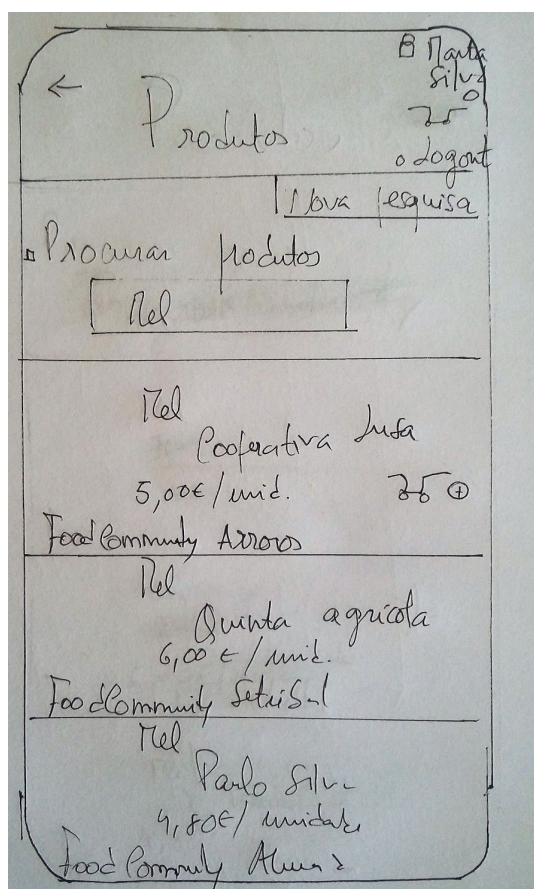 ← Marta
Silva
Produtos
Logout
Nova Pesquisa
Procurar produtos
Mel
Mel
Cooperativa Lusa
5,00€/unid.
FoodCommunity Arroios
Mel
Quinta agrícola
6,00€/unid.
FoodCommunity Setúbal
Mel
Paulo Silva
4,80€/unidade
FoodCommunity Almada